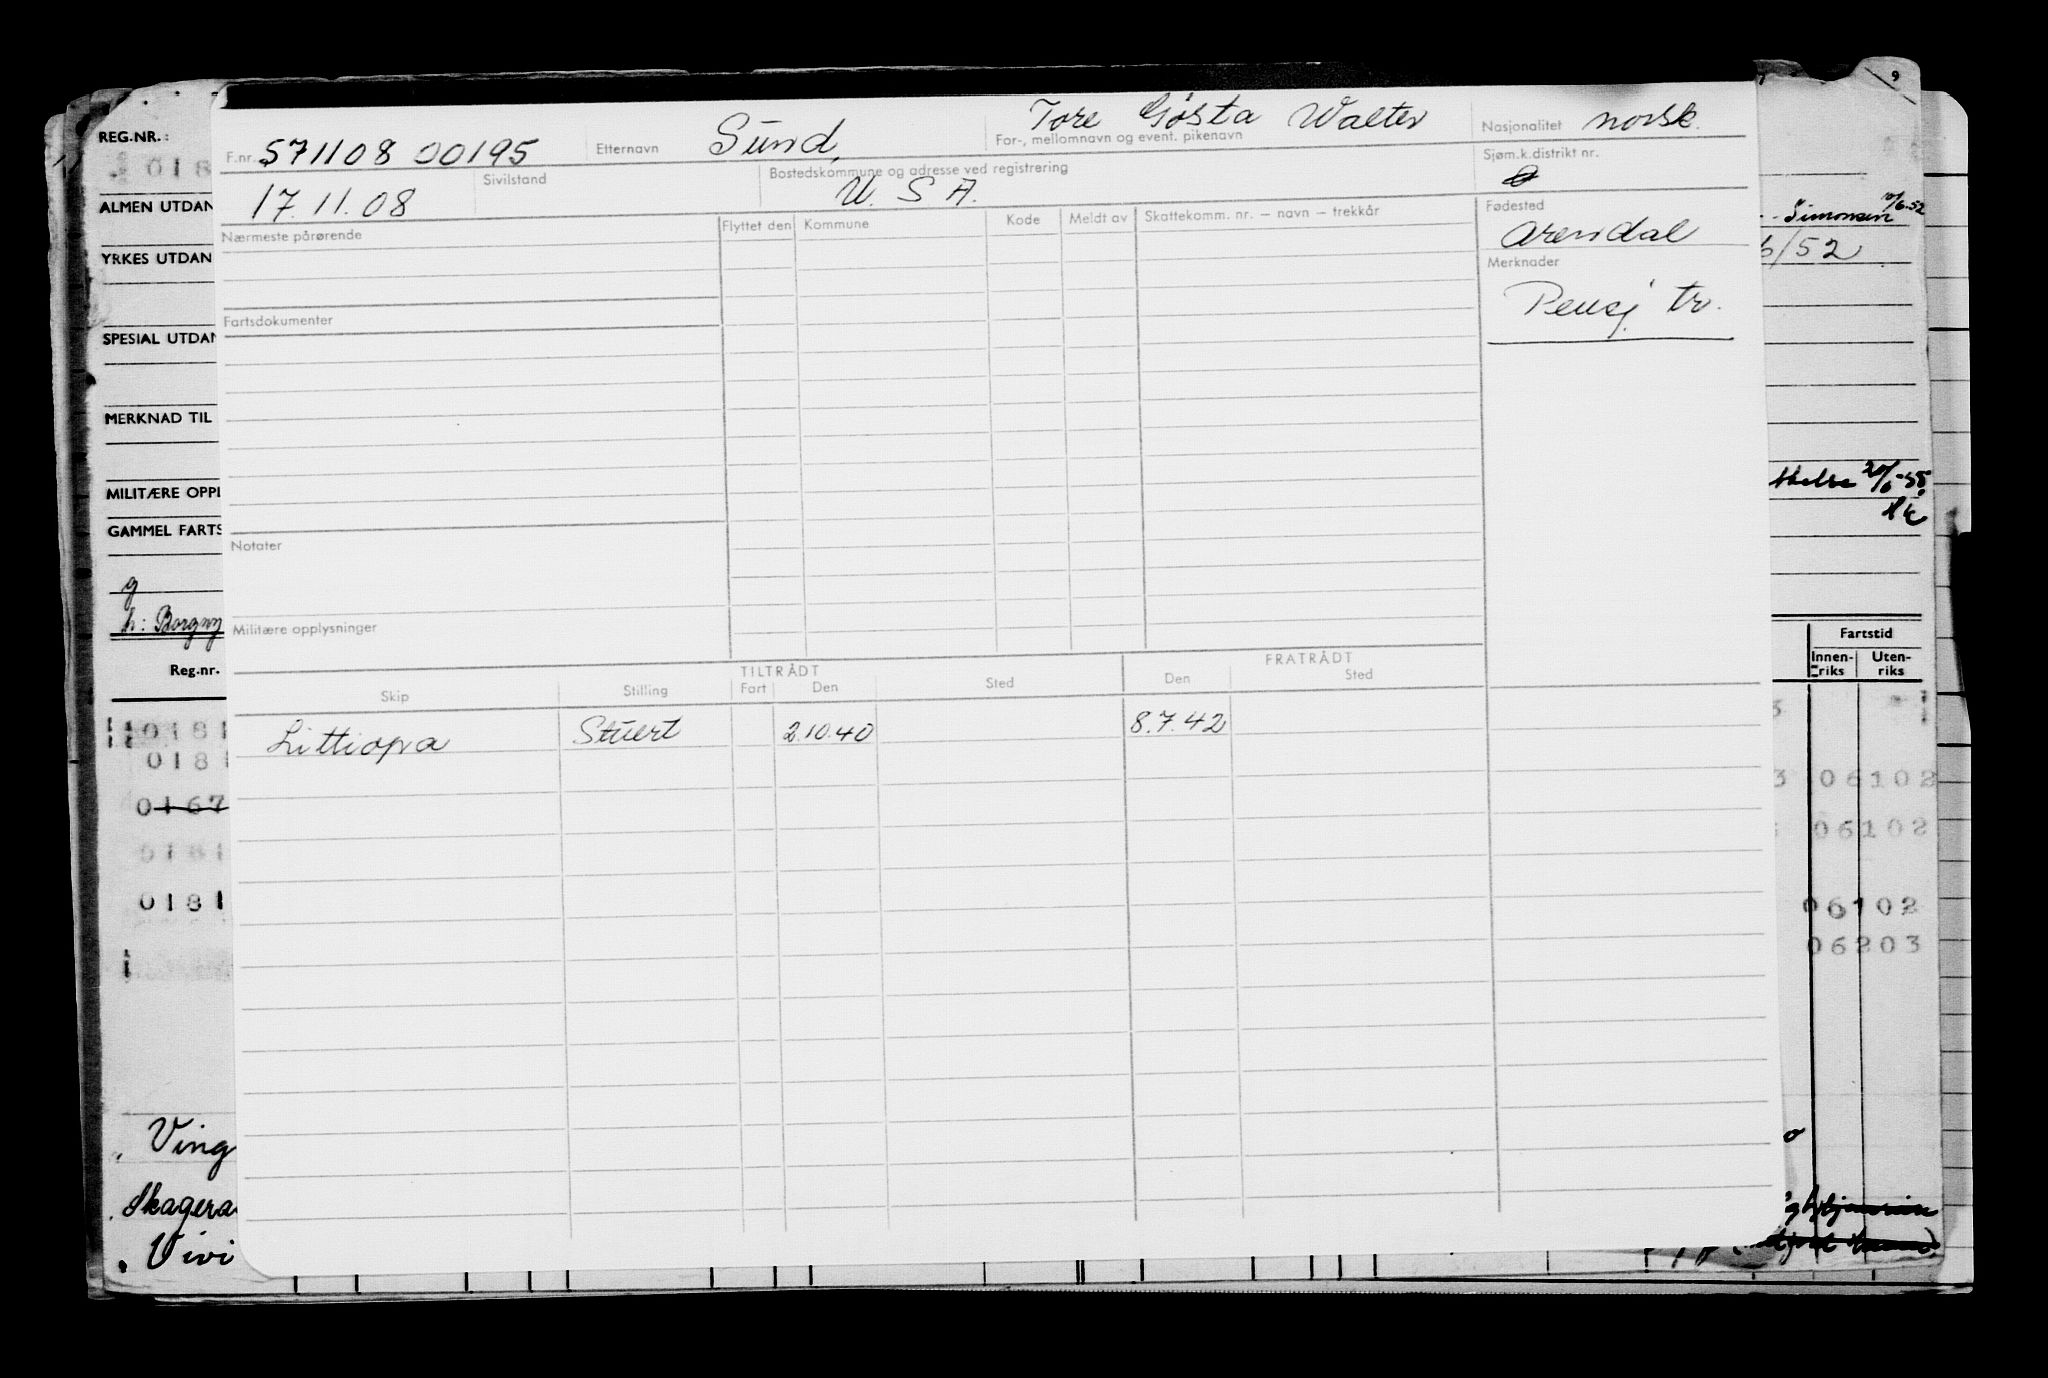 REG.NR.:
018
ALMEN UTDAN
YRKES UTDAN
SPESIAL UTDAN
MERKNAD TIL
MILITÆRE OPPL
GAMMEL FARTS
g
h: Borgny
Reg.nr.
0181
0181
0167
0181
0181
Ving
Skagera
Vivi
F.nr. 571108 00195 Etternavn Sund, Tore Gösta Walter Nasjonalitet norsk.
For-, mellomnavn og event. pikenavn
17.11.08 Sivilstand Bostedskommune og adresse ved registrering Sjøm.k.distrikt nr.
U. S A. 0
Nærmeste pårørende Flyttet den Kommune Kode Meldt av Skattekomm. nr. – navn – trekkår Fødested
Arendal
Merknader
Pensj. tr.
Fartsdokumenter
Notater
Militære opplysninger
TILTRÅDT FRATRÅDT
Skip Stilling Fart Den Sted Den Sted
Littiopra Stuert 2.10.40 8.7.42
Simonsen 10/6.52
6/52
20/6-55
Fartstid
Innen-riks Uten-riks
3 06102
06102
06102
06203